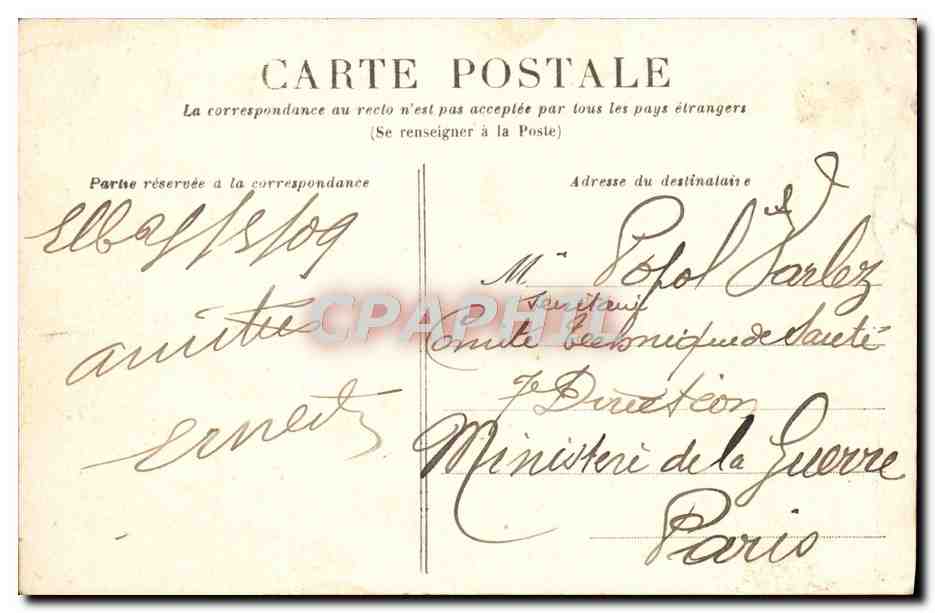 CARTE POSTALE
La correspondance au recto n'est pas acceptée par tous les pays étrangers
(Se renseigner à la Poste)
Partie réservée a la correspondance
Adresse du destinataire
/5/09
amitiés
Ernest
Mr Popol
Secrétaire
Comité Technique de Santé
7e Direction
Ministère de la Guerre
Paris
CPAPHIL